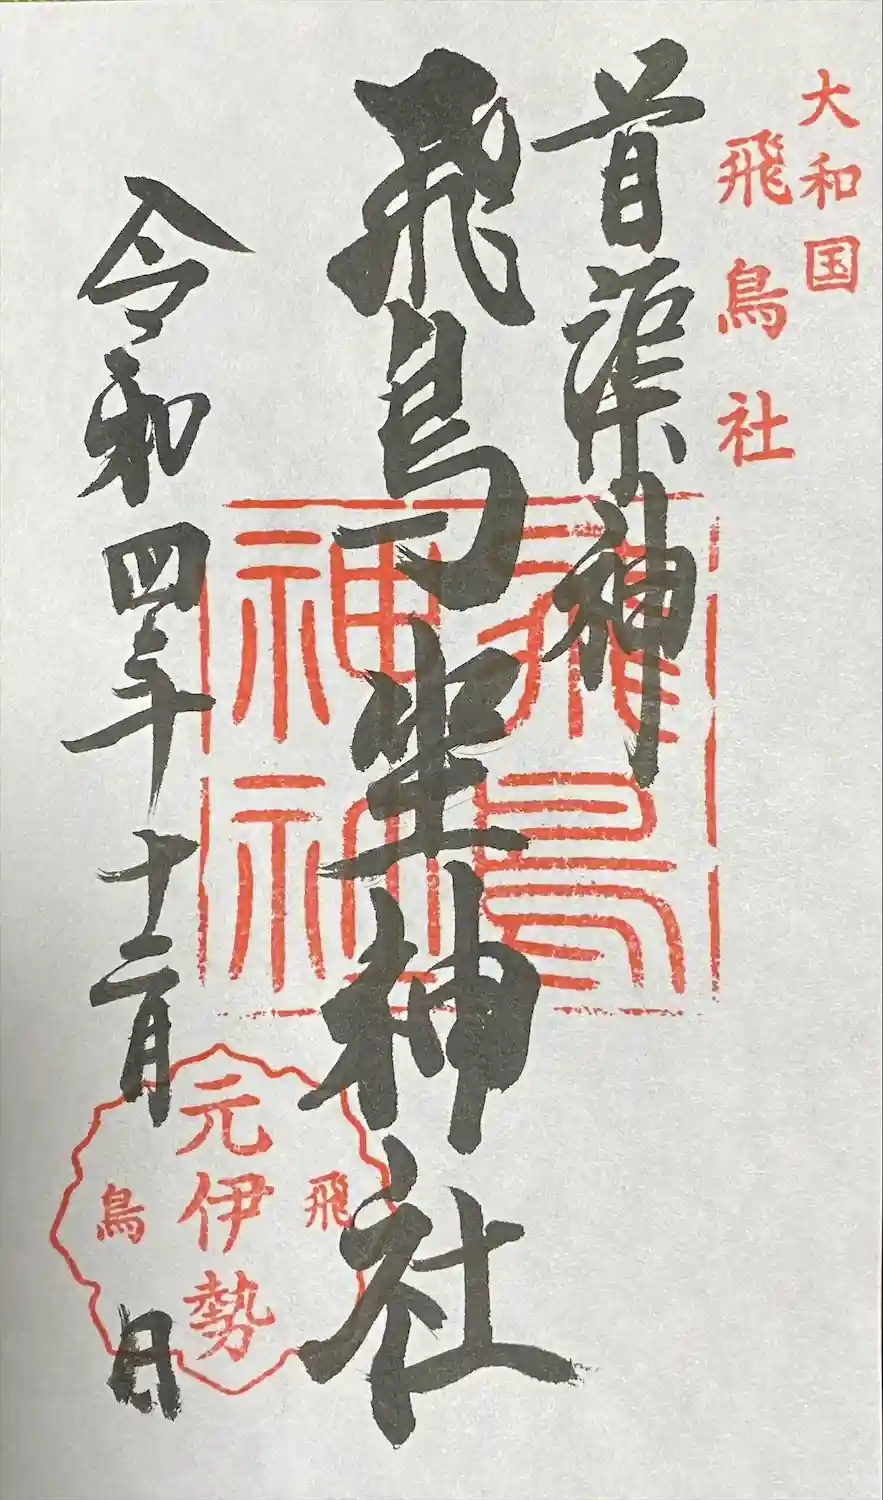 大和国
飛鳥社
首渠神
飛鳥坐神社
飛鳥
神社
令和四年十二月 日
飛鳥
元伊勢